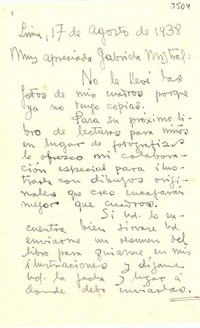 3504
Lima, 17 de Agosto de 1938
Muy apreciada Gabriela Mistral:
No le llevé las
fotos de mis cuadros porque
ya no tengo copias.
Para su próximo li-
bro de lecturas para niños
en lugar de fotografías
le ofrezco mi colabora-
ción especial para ilus-
trarla con dibujos origi-
nales que creo encajarán
mejor que cuadros.
Si Ud. lo en-
cuentra bien sírvase Ud.
enviarme un resumen del
libro para guiarme en mis
ilustraciones y dígame
Ud. la fecha y lugar á
donde debo enviarlas.